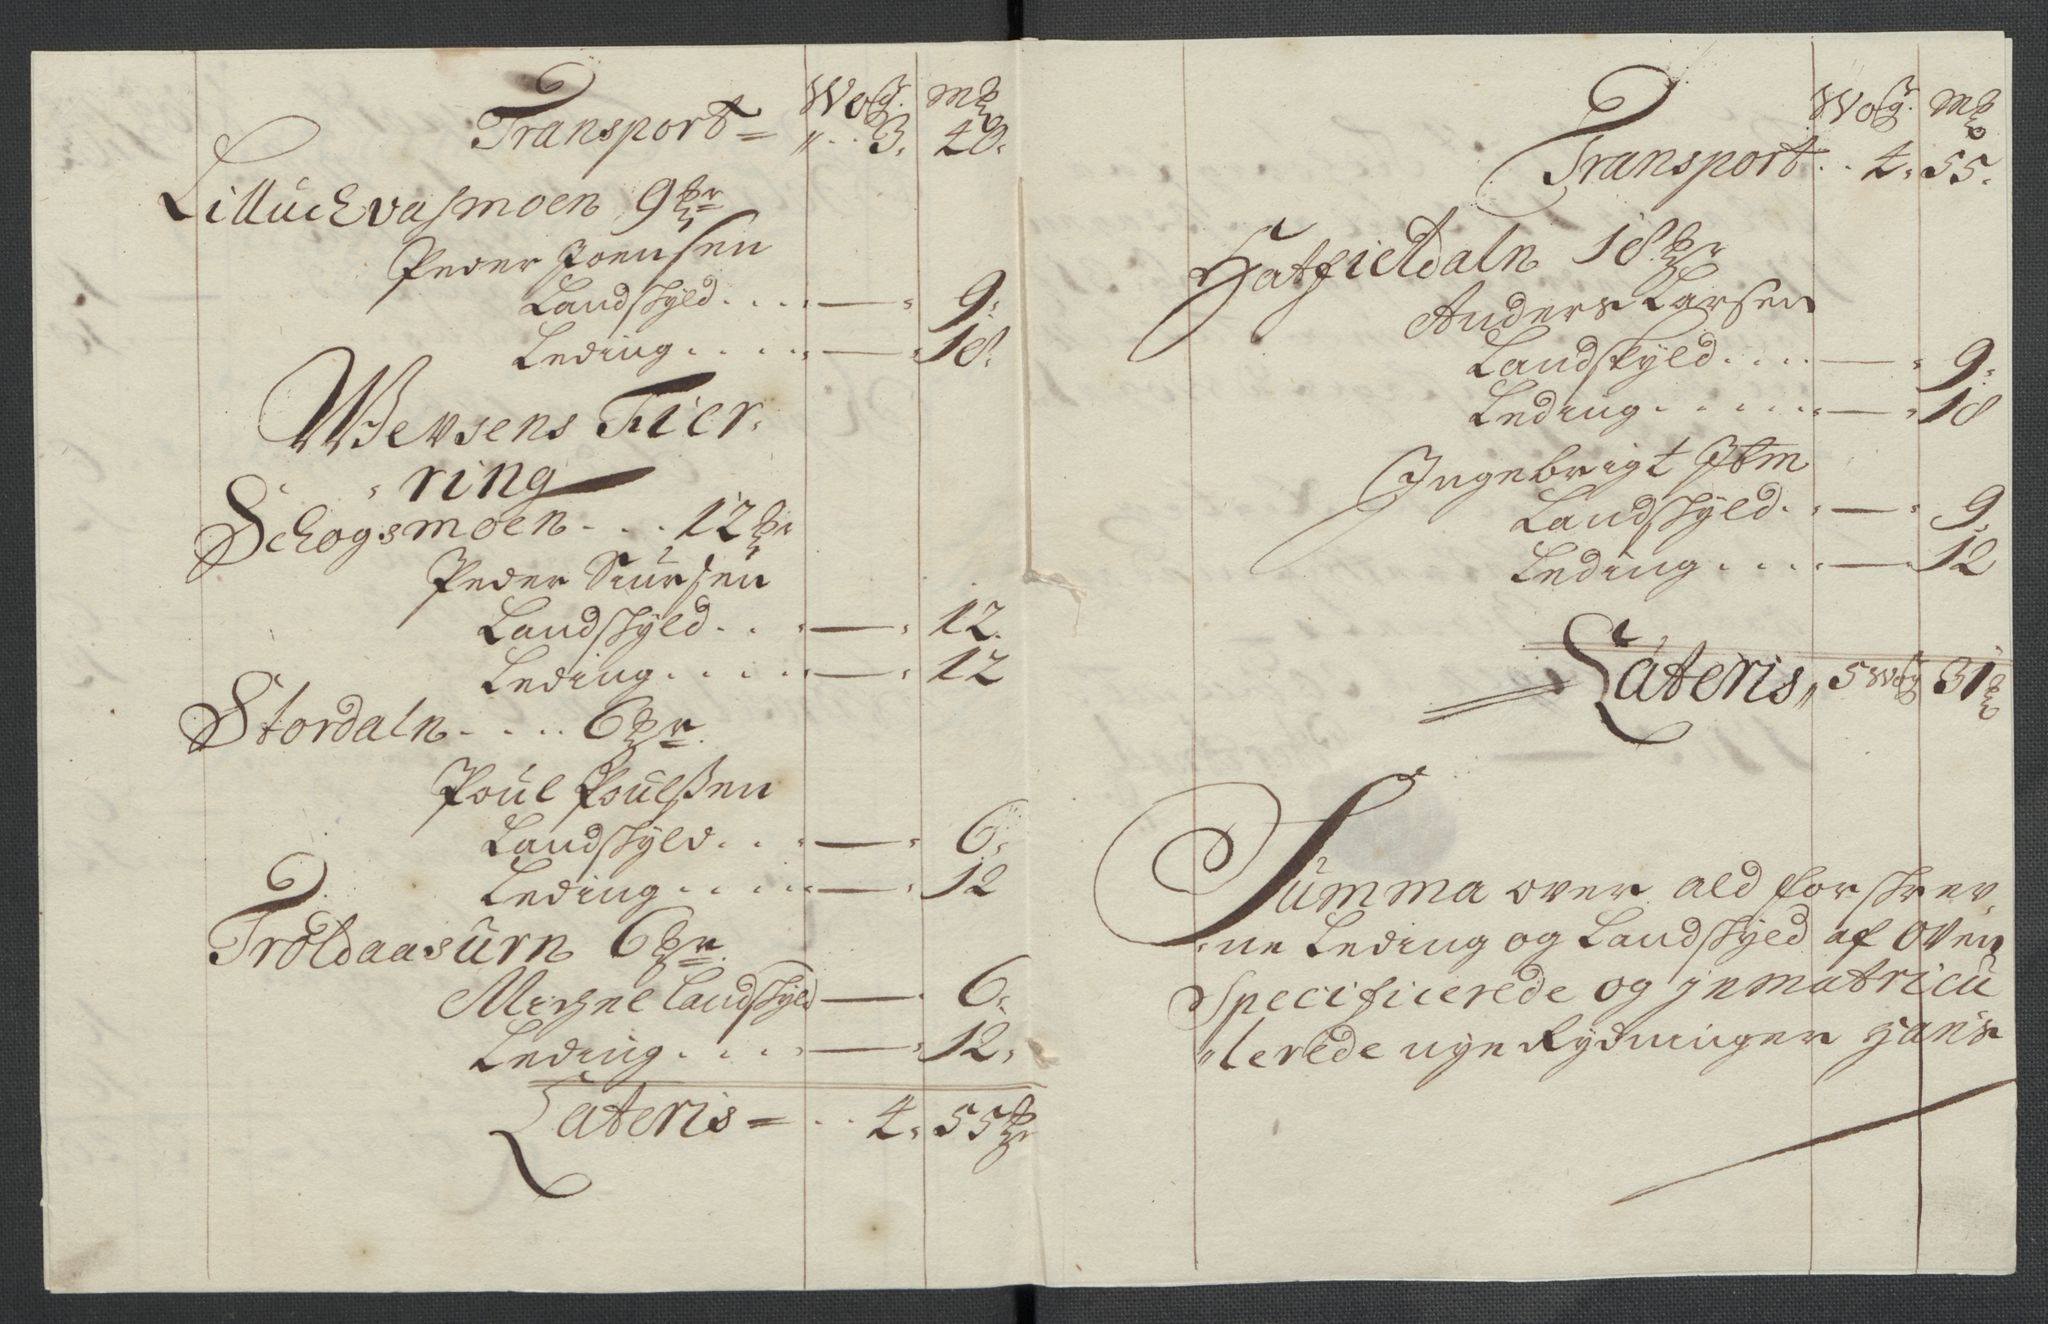 Wog. Mk
Transport = " . . 3. 40.
Lilluchvasmoen 9 Mkr
Peder Joensen
Landskyld . . . . — 9.
Leding . . . . . — 18.
Wevsens Fier-
ring
Schogsmoen . . . 12 Mkr
Peder Siursen
Landskyld . . . — 12.
Leding . . . . . — 12
Stordaln . . . . 6 Mkr
Poul Poulssen
Landskyld . . . — 6.
Leding . . . . . — 12
Troldaasurn 6 Mkr
Michel Landskyld — 6.
Leding . . . . — 12.
Lateris = . . 4. 55 Mkr
Wog. Mk
Transport . . 4. 55.
Hatfieldaln 18 Mkr
Anders Larsen
Landskyld . . . . — 9.
Leding . . . . . — 18
Ingebrigt Ibm
Landskyld . . — 9.
Leding . . . . . — 12
Lateris " 5 Wog 31 Mk
Summa over ald forskrev-
ne Leding og Landskyld af oven
Specificerede og jnmatricu
lerede nye Rydninger Hans